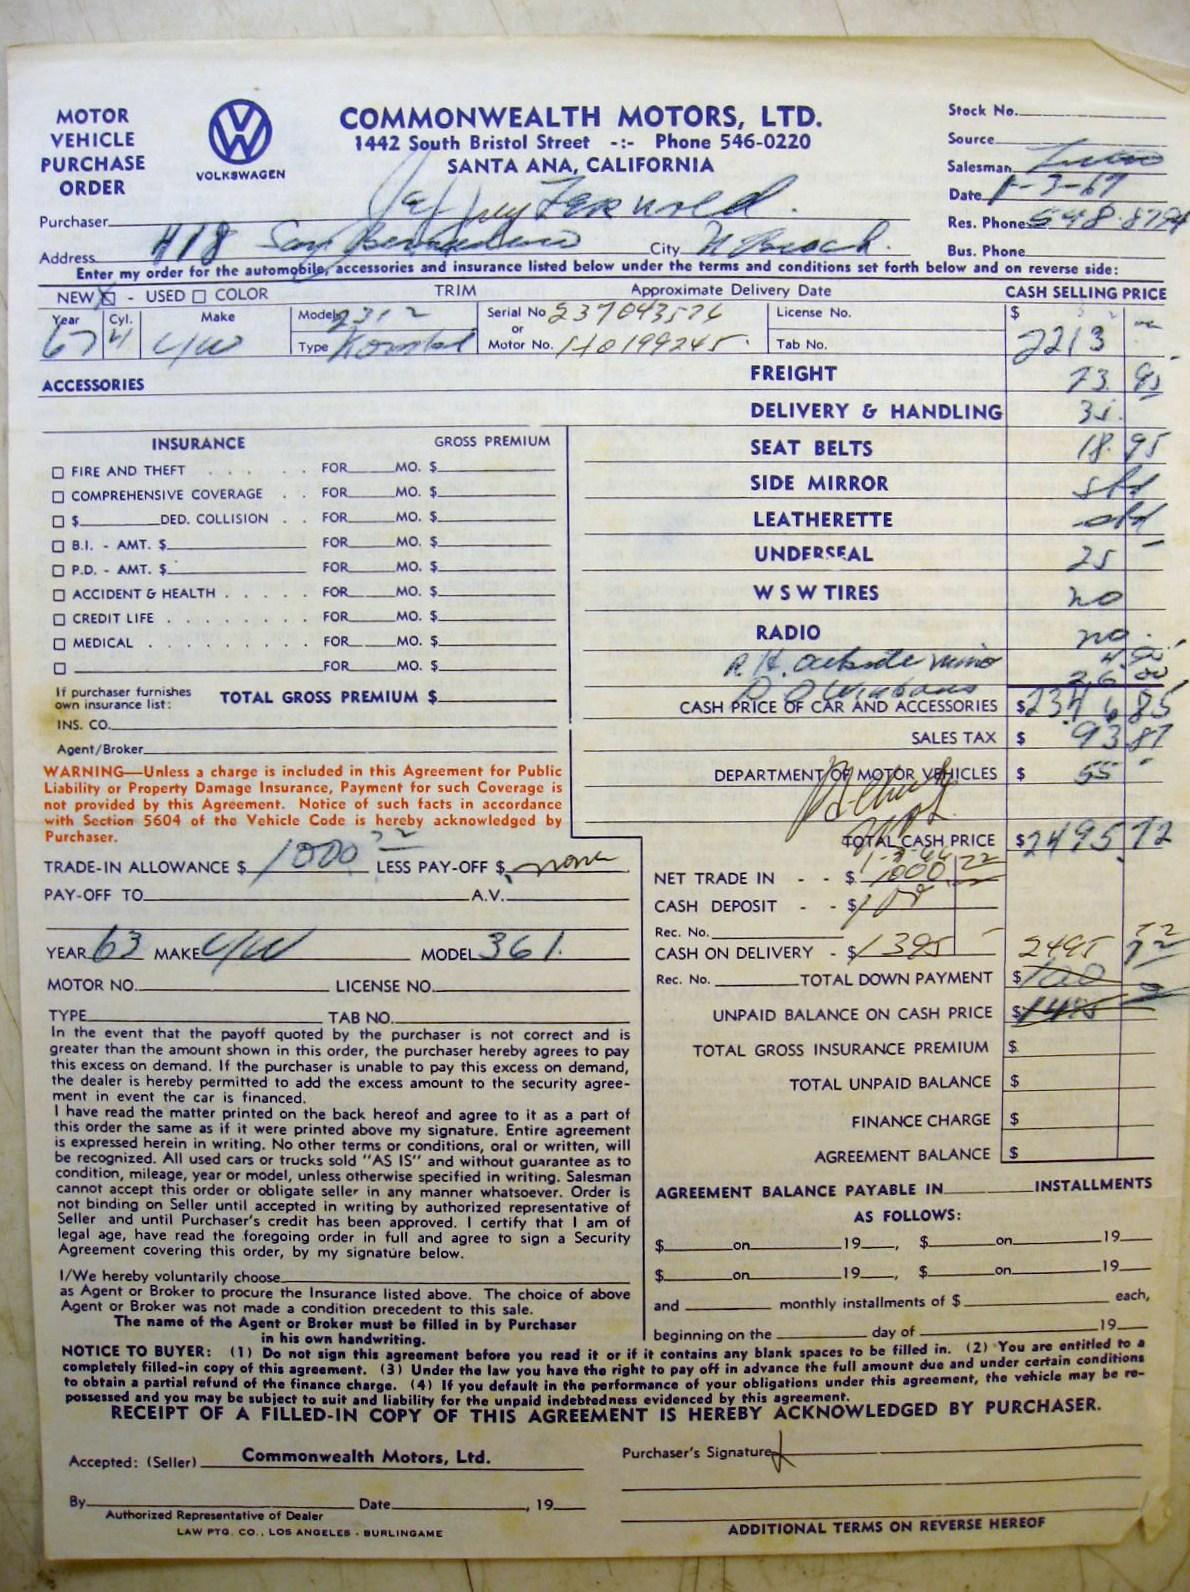 MOTOR
VEHICLE
PURCHASE
ORDER
VOLKSWAGEN
COMMONWEALTH MOTORS, LTD.
1442 South Bristol Street -:- Phone 546-0220
SANTA ANA, CALIFORNIA
Stock No.
Source
Salesman
Date 1-3-67
Res. Phone 548-8794
Bus. Phone
Purchaser Jeffrey
Address 418 San Bernardino City N Beach.
Enter my order for the automobile, accessories and insurance listed below under the terms and conditions set forth below and on reverse side:
NEW X - USED COLOR TRIM Approximate Delivery Date CASH SELLING PRICE
Year 67 Cyl. 4 Make V/W Model 2312 Serial No 237043576 License No. $ 2213
Type Kombi or Motor No. H0199245 Tab No.
ACCESSORIES
FREIGHT 73.95
DELIVERY & HANDLING 35.
SEAT BELTS 18.95
SIDE MIRROR std
LEATHERETTE std
UNDERSEAL 25 -
W S W TIRES no
RADIO no.
R.H. outside mirro 4 90
P.O. Windows 26 00
CASH PRICE OF CAR AND ACCESSORIES $2346 85
SALES TAX $ 93 87
DEPARTMENT OF MOTOR VEHICLES $ 55 -
TOTAL CASH PRICE $2495 72
INSURANCE GROSS PREMIUM
FIRE AND THEFT . . . . . . FOR MO. $
COMPREHENSIVE COVERAGE . . FOR MO. $
$ DED. COLLISION . . FOR MO. $
B.I. - AMT. $ FOR MO. $
P.D. - AMT. $ FOR MO. $
ACCIDENT & HEALTH . . . . . FOR MO. $
CREDIT LIFE . . . . . . . . FOR MO. $
MEDICAL . . . . . . . . . FOR MO. $
FOR MO. $
If purchaser furnishes
own insurance list: TOTAL GROSS PREMIUM $
INS. CO.
Agent/Broker
WARNING—Unless a charge is included in this Agreement for Public
Liability or Property Damage Insurance, Payment for such Coverage is
not provided by this Agreement. Notice of such facts in accordance
with Section 5604 of the Vehicle Code is hereby acknowledged by
Purchaser.
TRADE-IN ALLOWANCE $ 1000 72 LESS PAY-OFF $ none
PAY-OFF TO A.V.
YEAR 63 MAKE V/W MODEL 361.
MOTOR NO. LICENSE NO.
TYPE TAB NO.
NET TRADE IN - - $ 1000 72
CASH DEPOSIT - - $ 100
Rec. No.
CASH ON DELIVERY - $ 1395 - 2495 72
Rec. No. TOTAL DOWN PAYMENT $ 100
UNPAID BALANCE ON CASH PRICE $
TOTAL GROSS INSURANCE PREMIUM $
TOTAL UNPAID BALANCE $
FINANCE CHARGE $
AGREEMENT BALANCE $
AGREEMENT BALANCE PAYABLE IN INSTALLMENTS
AS FOLLOWS:
$ on 19 , $ on 19
$ on 19 , $ on 19
and monthly installments of $ each,
beginning on the day of 19
In the event that the payoff quoted by the purchaser is not correct and is
greater than the amount shown in this order, the purchaser hereby agrees to pay
this excess on demand. If the purchaser is unable to pay this excess on demand,
the dealer is hereby permitted to add the excess amount to the security agree-
ment in event the car is financed.
I have read the matter printed on the back hereof and agree to it as a part of
this order the same as if it were printed above my signature. Entire agreement
is expressed herein in writing. No other terms or conditions, oral or written, will
be recognized. All used cars or trucks sold "AS IS" and without guarantee as to
condition, mileage, year or model, unless otherwise specified in writing. Salesman
cannot accept this order or obligate seller in any manner whatsoever. Order is
not binding on Seller until accepted in writing by authorized representative of
Seller and until Purchaser's credit has been approved. I certify that I am of
legal age, have read the foregoing order in full and agree to sign a Security
Agreement covering this order, by my signature below.
I/We hereby voluntarily choose
as Agent or Broker to procure the Insurance listed above. The choice of above
Agent or Broker was not made a condition precedent to this sale.
The name of the Agent or Broker must be filled in by Purchaser
in his own handwriting.
NOTICE TO BUYER: (1) Do not sign this agreement before you read it or if it contains any blank spaces to be filled in. (2) You are entitled to a
completely filled-in copy of this agreement. (3) Under the law you have the right to pay off in advance the full amount due and under certain conditions
to obtain a partial refund of the finance charge. (4) If you default in the performance of your obligations under this agreement, the vehicle may be re-
possessed and you may be subject to suit and liability for the unpaid indebtedness evidenced by this agreement.
RECEIPT OF A FILLED-IN COPY OF THIS AGREEMENT IS HEREBY ACKNOWLEDGED BY PURCHASER.
Accepted: (Seller) Commonwealth Motors, Ltd. Purchaser's Signature
By Date , 19
Authorized Representative of Dealer
LAW PTG. CO., LOS ANGELES - BURLINGAME
ADDITIONAL TERMS ON REVERSE HEREOF